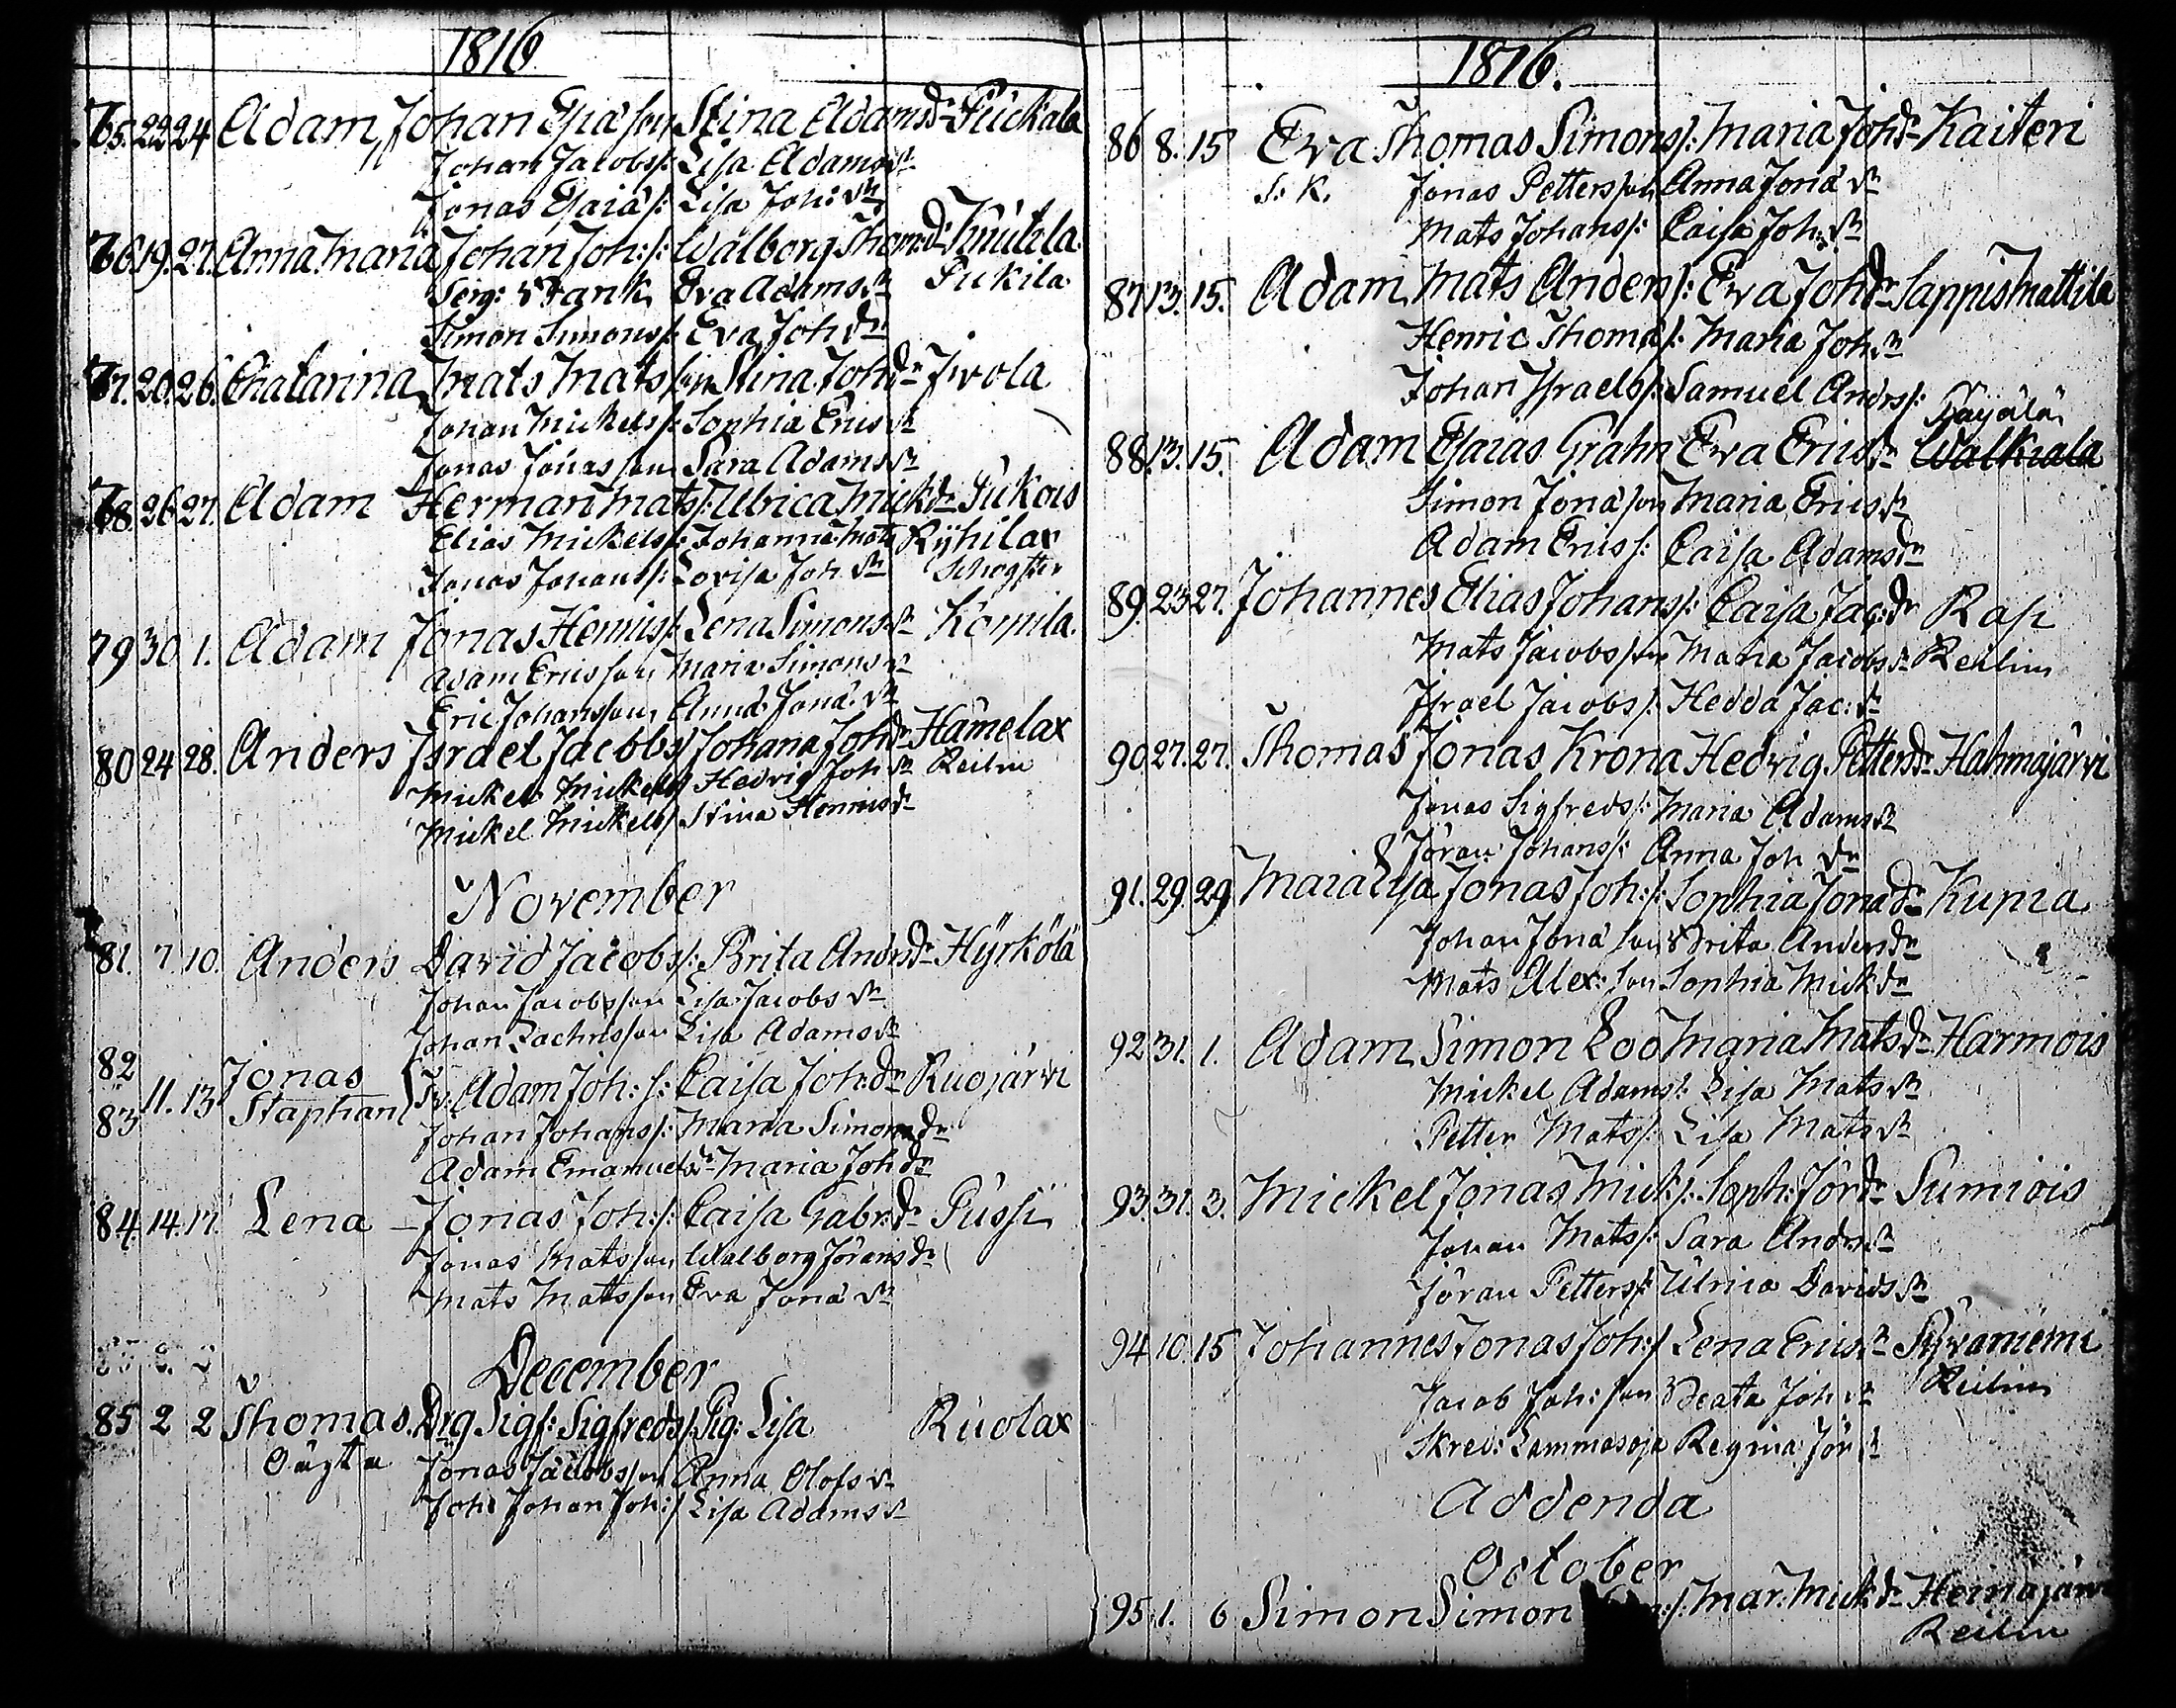 1816.
75. 22 24 Adam, Johan Esaiæson Stina Adamsdr Peickala
Johan Jacobs/: Lisa Adamsdr
Jonas Esaiæ/: Lisa Joh: dr
76. 19. 27. Anna Maria Johan Joh:/: Walborg Thom:dr Knutila
Serg: Frank Eva Adamsdr Pukila
Simon Simons/: Eva Joh dr
77. 20. 26. Chatarina Mats Matsson Stina Joh dr Jvola
Johan Mickels/: Sophia Ericsdr
Jonas Jonasson Sara Adamsdr
78. 26. 27. Adam Herman Mats/: Ulrica Mickdr Pukois
Elias Mickels/: Johanna Mats Ryhilax
Jonas Johans/: Lovisa Joh dr
79 30 1. Adam Jonas Henrics/: Lena Simonsdr
Adam Ericsson Maria Simonsdr
Eric Johansson Anna Jonæ dr
80 24 28. Anders Israel Jacobs/ Johana Joh dr Hämelax
Mickel Mickels/ Hedvig Joh dr Reilin
Mickel Mickels/ Stina Henricsdr
November
81. 7. 10. Anders David Jacobs/: Brita Andrsdr Hyrkölä
Johan Jacobsson Lisa Jacobs dr
Johan Zachrisson Lisa Adamsdr
82
83 11. 13 Jonas Staphan Tv: Adam Joh:/: Caisa Joh:dr Ruojärvi
Johan Johans/: Maria Simonsdr
Adam Emanuels/: Maria Joh dr
84. 14. 17. Lena - Jonas Joh:/: Caisa Gabr:dr Pussi
Jonas Matsson Walborg Jöransdr
Mats Matsson Eva Jonæ dr
December
85 2 2 Thomas. Drg Sigf: Sigfreds/: Pig: Lisa Ruolax
Oägta Jonas Jacobsson Anna Olofsdr
Johan Joh:/ Lisa Adamsdr
1816.
86 8. 15 Eva Thomas Simons/: Maria Joh dr Kaiteri
S: K. Jonas Pettersson Anna Jonæ dr
Mats Johans/: Caisa Joh: dr
87. 13. 15. Adam Mats Anders/: Eva Joh dr Sappis Mattila
Henric Thomæ/: Maria Joh dr
Johan Israels/: Samuel Andrs/:
88. 13. 15. Adam Esaias Grahn Eva Ericsdr Walkiala
Simon Jonæson Maria Ericsdr
Adam Erics/: Caisa Adamsdr
89. 23 27. Johannes Elias Johans/: Caisa Jac:dr Rasi
Mats Jacobsson Maria Jacobsdr Reilin
Israel Jacobs/: Hedda Jac: dr
90. 27. 27. Thomas Jonas Krona Hedvig Pettersdr Hahmajärvi
Jonas Sigfreds/: Maria Adamsdr
Jöran Johans/: Anna Joh dr
91. 29. 29 Maia Lisa Jonas Joh:/: Sophia Jonædr Kupia
Johan Jonæson Brita Andersdr
Mats Alex: son Sophia Mick dr
92 31. 1. Adam Simon Loo Maria Matsdr Harmois
Mickel Adams/: Lisa Matsdr
Petter Mats/: Lisa Matsdr
93. 31. 3. Mickel Jonas Mick/: Soph: Jördr Sumiois
Johan Mats/: Sara Andrsdr
Jöran Petters/: Ulrica Davidsdr
94 10. 15 Johannes Jonas Joh:/ Lena Ericsdr Syväniemi
Jacob Joh: son Beata Joh dr Reilin
Skred: Lammasoja Regina Jör dr
Addenda
October
95. 1. 6 Simon Simon /: Mar: Mick dr Heinäjärvi
Reilin